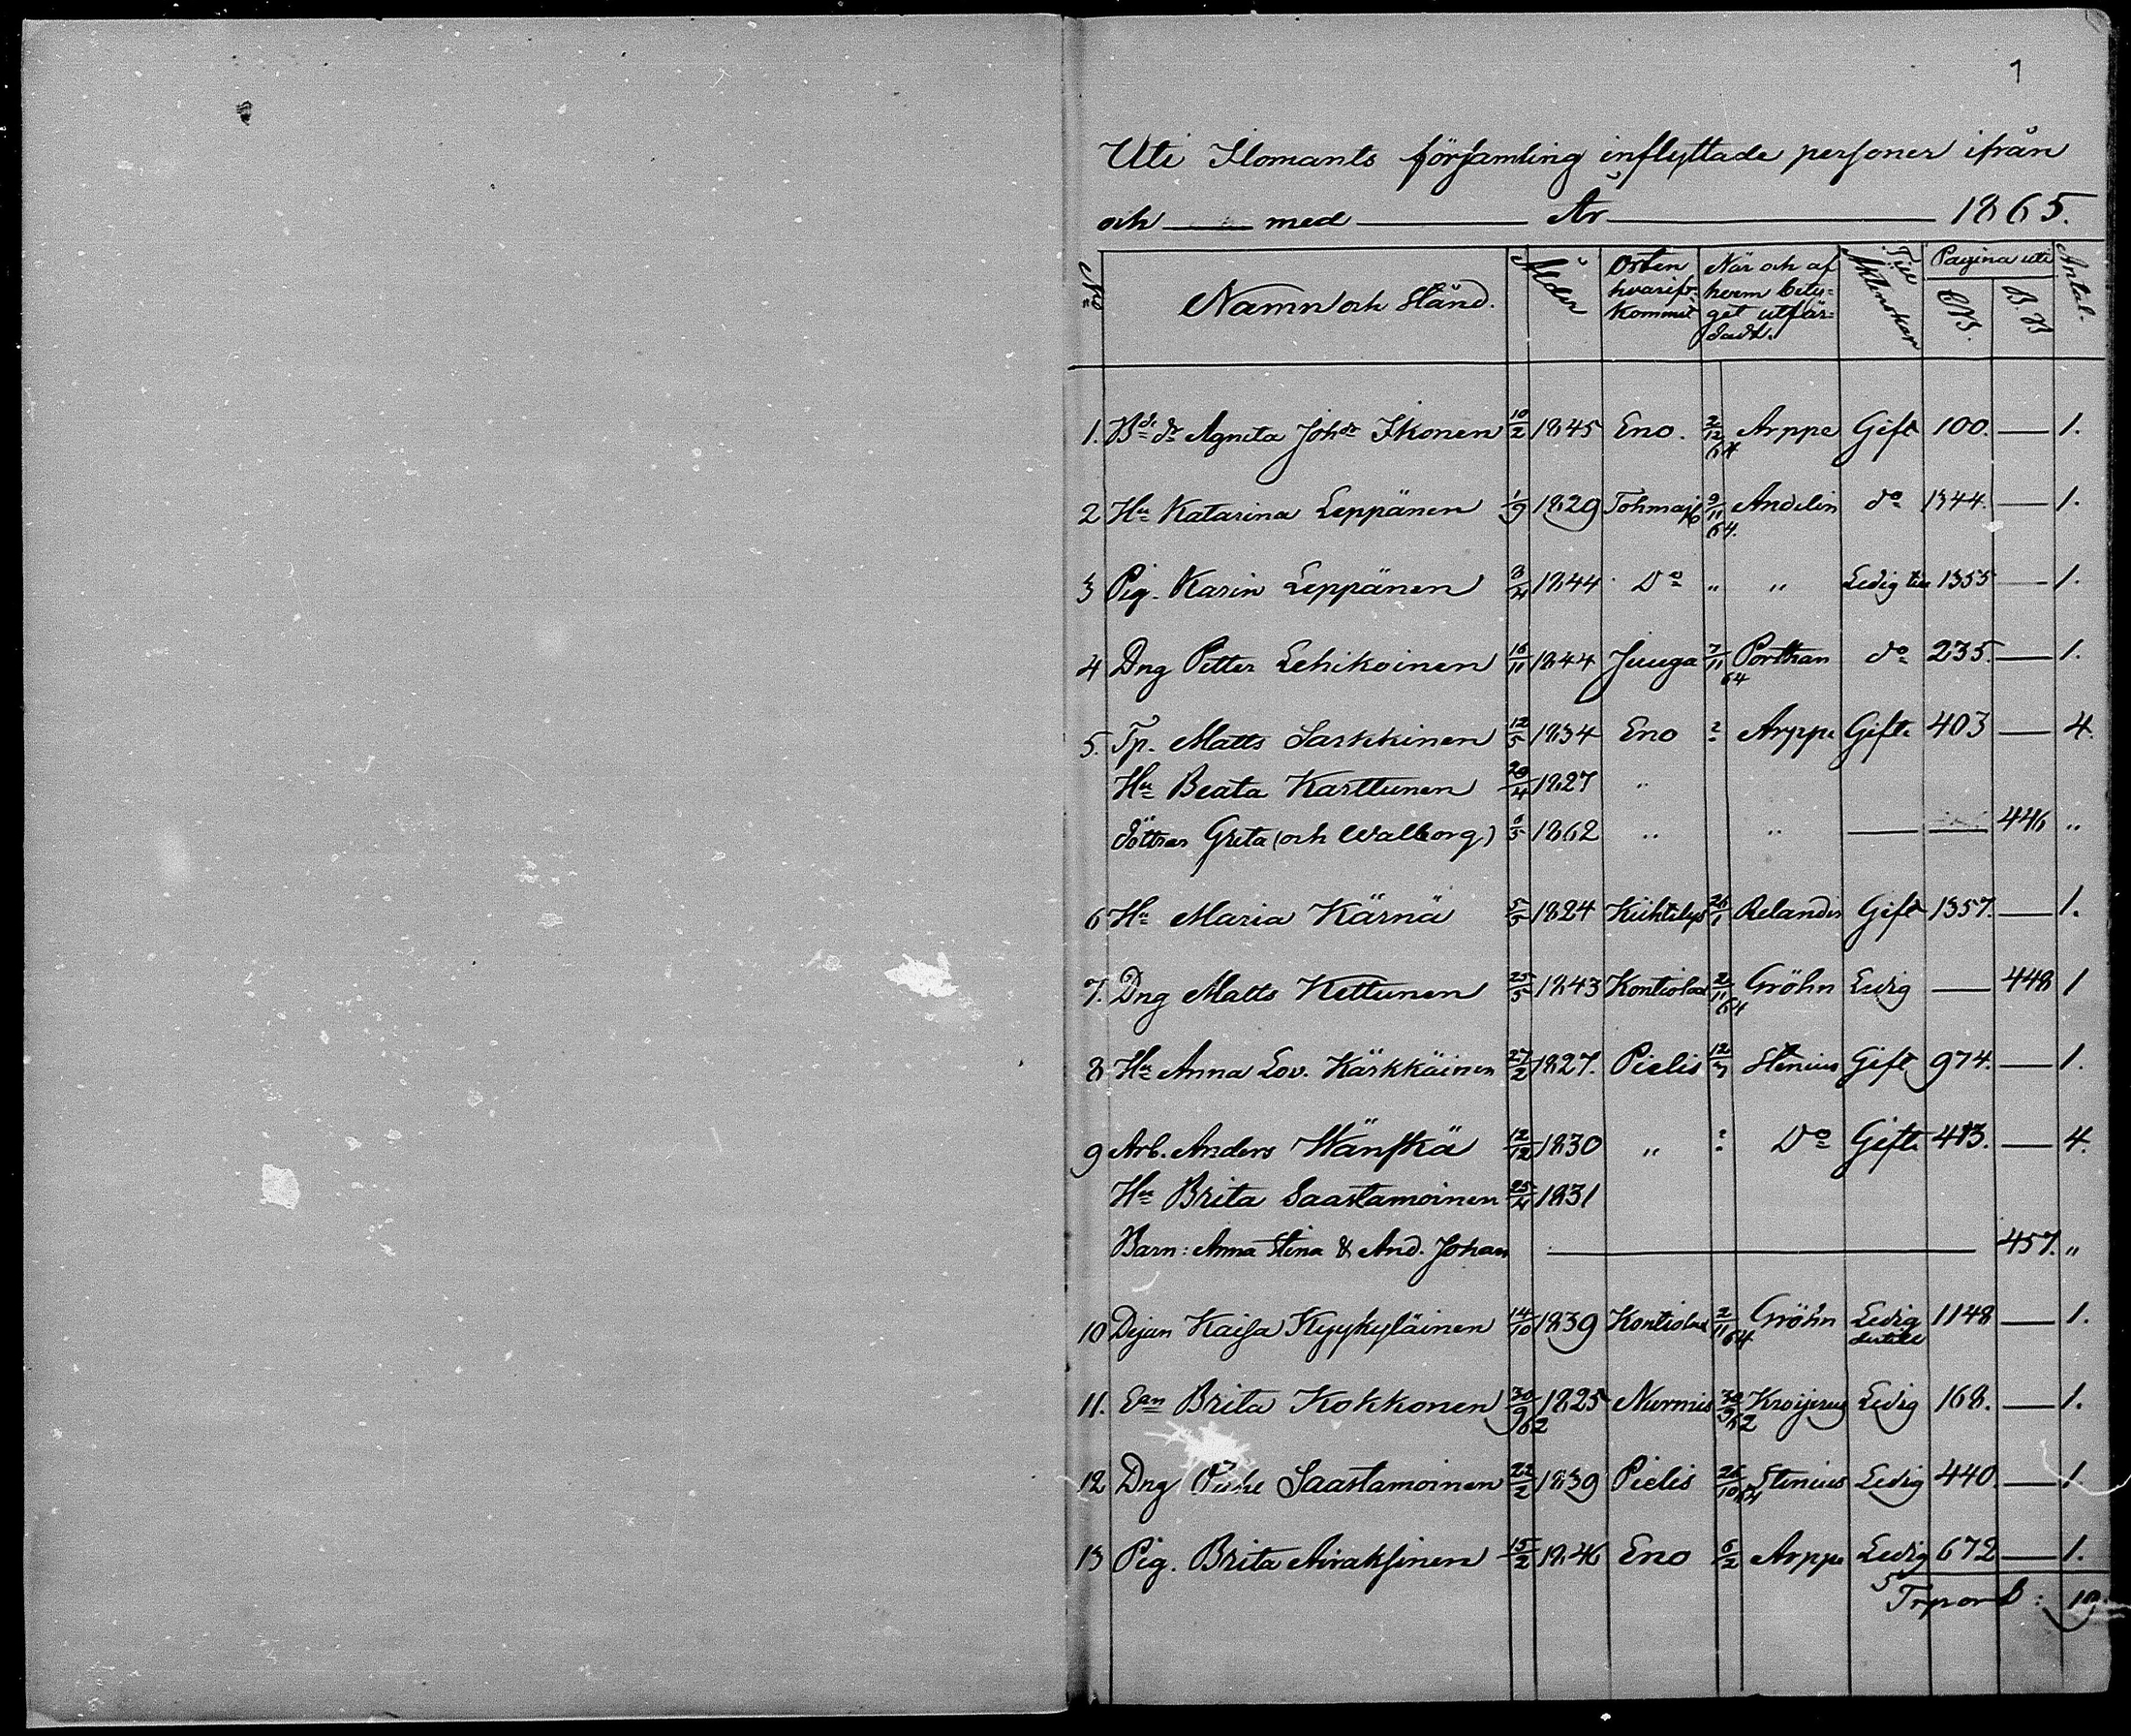 1
Uti Ilomants församling inflyttade personer ifrån
och med År 1865.
No Namn och Stånd. Ålder Orten hvarifr. kommit När och af hvem bety= get utfär= dadt. Till Äktenskap Pagina uti CB. B.B Antal.
1. Bde dr Agneta Johdr Ikonen 10/2 1845 Eno. 2/12 64 Arppe Gift 100. — 1.
2 Hu Katarina Leppänen 1/9 1829 Tohmaj. 9/11 64. Andelin do 1344. — 1.
3 Pig. Karin Leppänen 8/4 1844 Do " " Ledig till 1355 — 1.
4 Dng Petter Lehikoinen 16/11 1844 Juuga 7/11 64 Porthan do 235. — 1.
5. Tp. Matts Sarkkinen 12/5 1834 Eno ? Arppe Gifte 403 — 4.
Hu Beata Karttunen 20/4 1827 "
döttrar Greta (och Walborg) 6/5 1862 " " — — 446 "
6 Hu Maria Kärnä 5/5 1824 Kiihtelys 26/1 Relander Gift 1357. — 1.
7. Dng Matts Kettunen 25/5 1843 Kontiolax 2/11 64 Gröhn Ledig — 448 1
8 Hu Anna Lov. Kärkkäinen 27/2 1827. Pielis 12/3 Stenius Gift 974. — 1.
9 Arb. Anders Wänskä 12/12 1830 " ? Do Gifte 413. — 4.
Hu Brita Saastamoinen 25/4 1831
Barn: Anna Stina & And. Johan — 457. "
10 Dejan Kaisa Kyykyläinen 14/10 1839 Kontiolax 2/11 64 Gröhn Ledig 1148 — 1.
11. Ean Brita Kokkonen 30/9 62 1825 Nurmis 30/9 62 Kroijerus Ledig 168. — 1.
12 Dng Saastamoinen 22/2 1839 Pielis 26/10 64 Stenius Ledig 440. — 1
13 Pig. Brita Airaksinen 15/2 1846 Eno 6/2 Arppe Ledig 672 — 1.
Trport : 19.